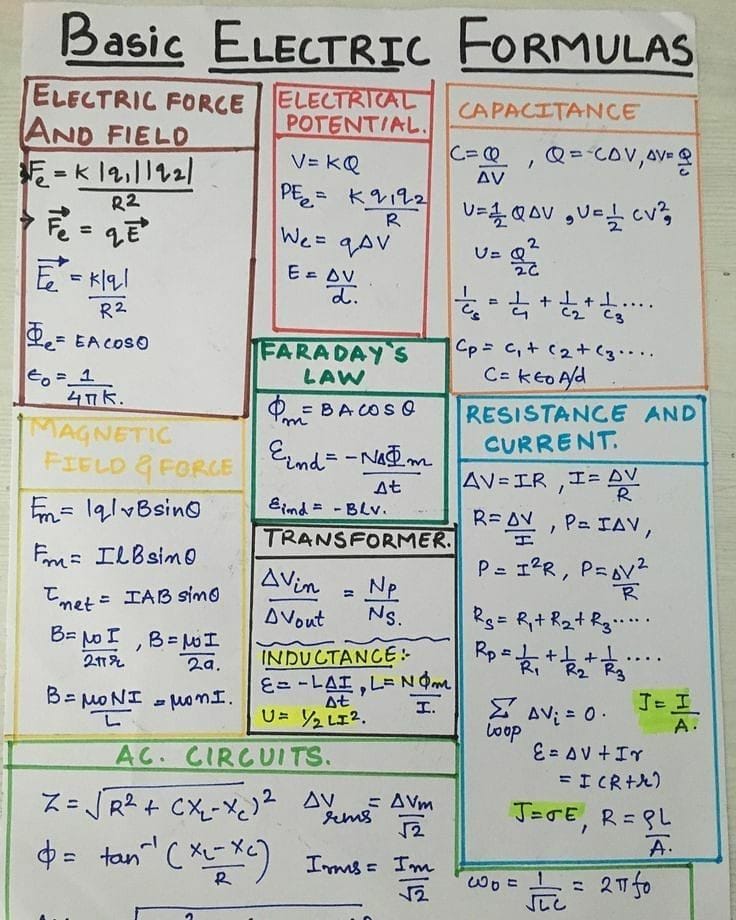 BASIC ELECTRIC FORMULAS
ELECTRIC FORCE
AND FIELD
Fe = K|q1||q2| / R²
→ F⃗e = qE⃗
E⃗e = K|q| / R²
Φe = EA cosθ
ϵ0 = 1 / 4πK.
ELECTRICAL
POTENTIAL.
V = KQ
PEe = K q1q2 / R
We = qΔV
E = ΔV / d.
CAPACITANCE
C = Q / ΔV , Q = -CΔV, ΔV = Q / C
U = 1/2 QΔV , U = 1/2 CV²,
U = Q² / 2C
1/Cs = 1/C1 + 1/C2 + 1/C3 ....
Cp = C1 + C2 + C3 ....
C = Kϵ0A/d
FARADAY'S
LAW
Φm = BA cosθ
Ɛind = -NΔΦm / Δt
Ɛind = -BLv.
MAGNETIC
FIELD & FORCE
Fm = |q|vB sinθ
Fm = IlB sinθ
τnet = IAB sinθ
B = μ0I / 2πr , B = μ0I / 2a.
B = μ0NI / L = μ0nI.
TRANSFORMER.
ΔVin / ΔVout = Np / Ns.
INDUCTANCE:-
Ɛ = -LΔI / Δt , L = NΦm / I.
U = 1/2 LI².
RESISTANCE AND
CURRENT.
ΔV = IR , I = ΔV / R
R = ΔV / I , P = IΔV,
P = I²R , P = ΔV² / R
Rs = R1 + R2 + R3 .....
Rp = 1/R1 + 1/R2 + 1/R3 ....
Σ loop ΔVi = 0. J = I / A.
Ɛ = ΔV + Ir
= I (R+r)
J = σE, R = ρL / A.
AC. CIRCUITS.
Z = √R² + (XL - Xc)² ΔVrms = ΔVm / √2
Φ = tan⁻¹ (XL - Xc / R) Irms = Im / √2
ω0 = 1 / √LC = 2πf0